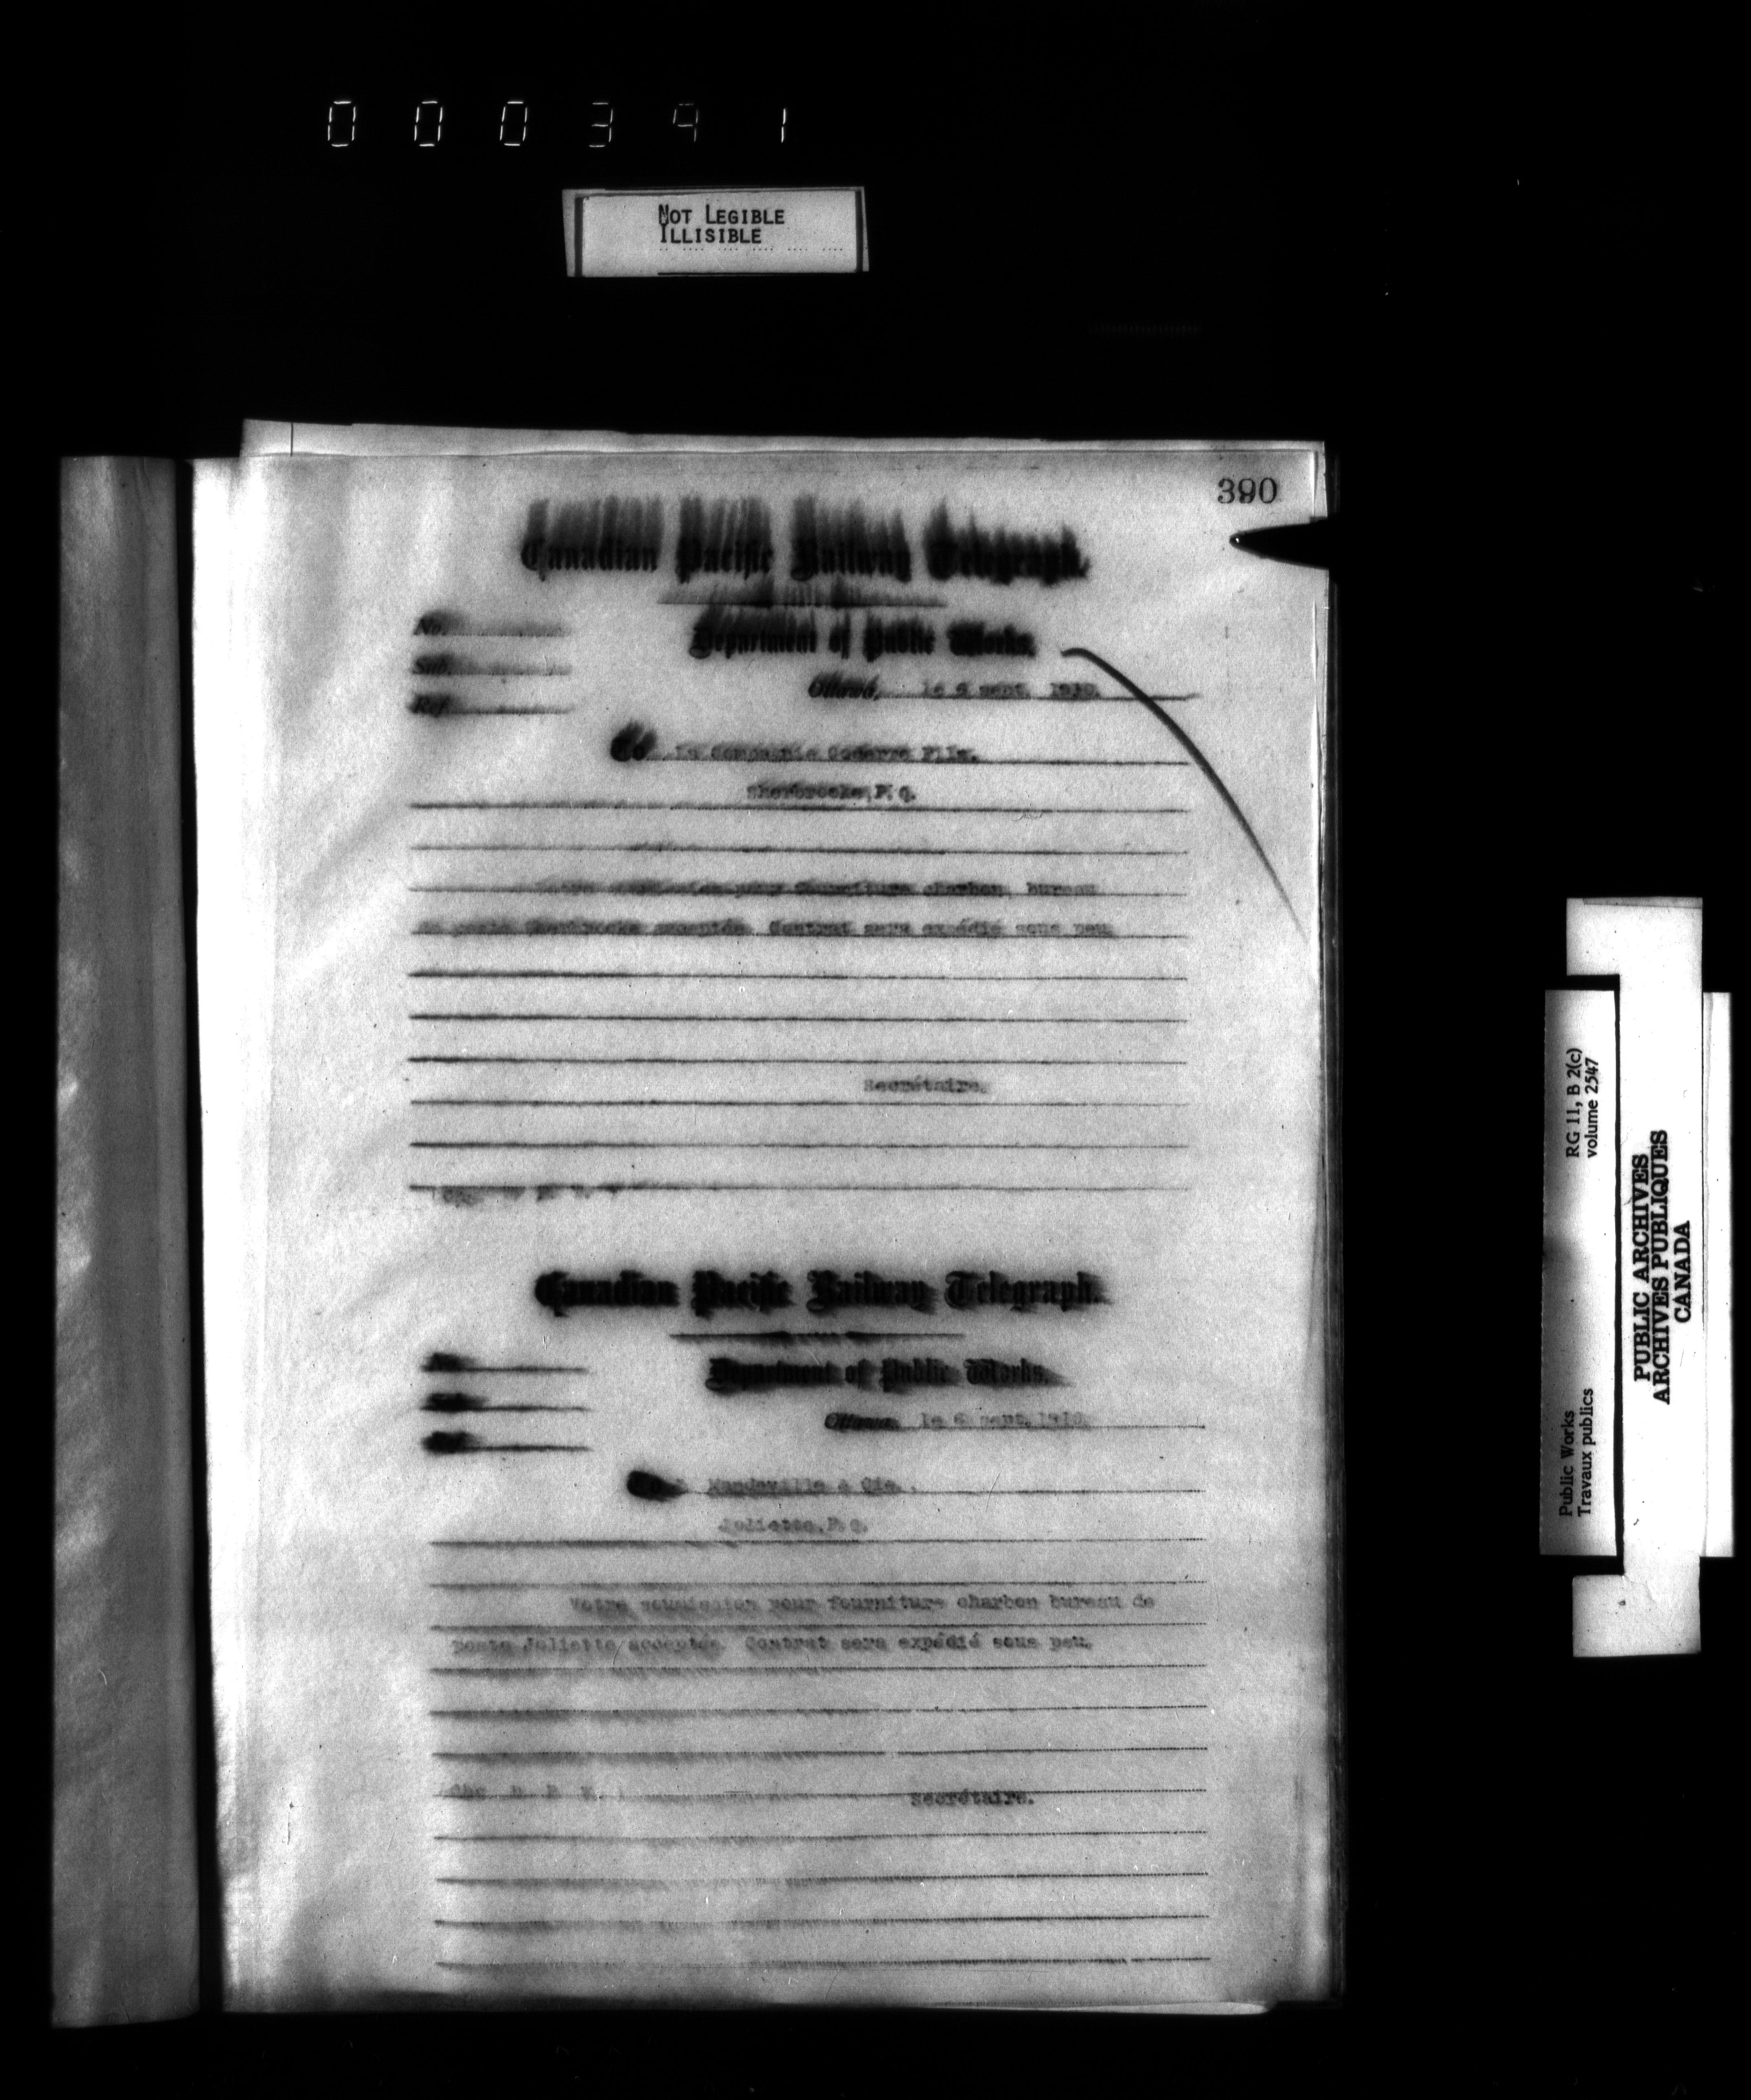 000391
NOT LEGIBLE
ILLISIBLE
390
Canadian Pacific Railway Telegraph.
Department of Public Works.
No.
Sub.
Ref.
Ottawa, le 6 sept. 1910.
To La Compagnie Coderre Fils.
Sherbrooke, P. Q.
Votre soumission pour fourniture charbon, bureau
de poste Sherbrooke acceptée. Contrat sera expédié sous peu.
Secrétaire.
Canadian Pacific Railway Telegraph.
Department of Public Works.
Ottawa, le 6 sept. 1910.
Mandeville & Cie.
Joliette, P. Q.
Votre soumission pour fourniture charbon bureau de
poste Joliette acceptée. Contrat sera expédié sous peu.
Chg. D. P. W.
Secrétaire.
RG 11, B 2(c)
volume 2547
Public Works
Travaux publics
PUBLIC ARCHIVES
ARCHIVES PUBLIQUES
CANADA